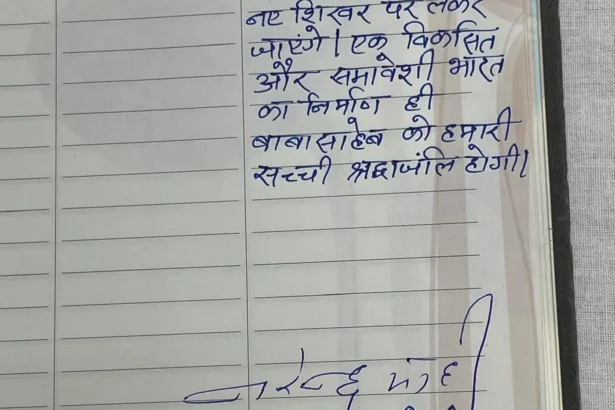 नए शिखर पर लेकर
जाएंगे। एक विकसित
और समावेशी भारत
का निर्माण ही
बाबासाहेब को हमारी
सच्ची श्रद्धाजंलि होगी।
नरेन्द्र मोदी